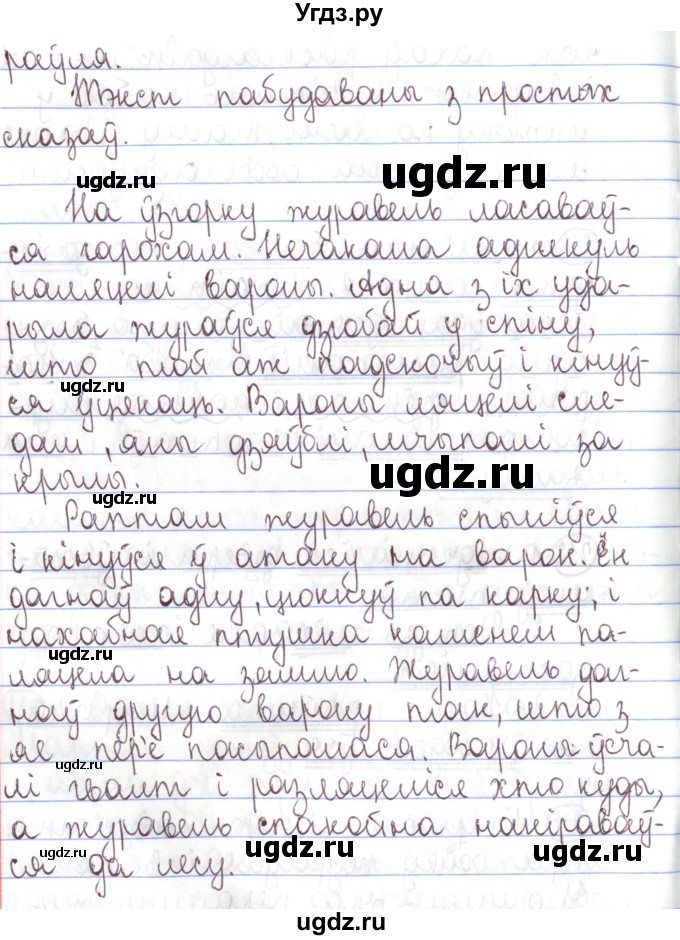 Угдз.ру
раўля.
Тэкст пабудаваны з простых
сказаў.
На ўзгорку журавель ласаваў-
ся гарохам. Нечакана аднекуль
наляцелі вароны. Адна з іх уда-
рыла жураўся дзюбай у спіну,
што той аж падскочыў і кінуў-
ся ўцякаць. Вароны ляцелі сле-
дам, яны дзяўблі, шчыпалі за
крылы.
Раптам журавель спыніўся
і кінуўся ў атаку на варон. Ён
дагнаў адну, цюкнуў па карку, і
нахабная птушка каменем па-
ляцела на зямлю. Журавель даг-
наў другую варону так, што з
яе пер'е пасыпалася. Вароны ўсча-
лі гвалт і разляцеліся хто куды,
а журавель спакойна накіраваў-
ся да лесу.
ugdz.ru
ugdz.ru
ugdz.ru
ugdz.ru
ugdz.ru
ugdz.ru
ugdz.ru
ugdz.ru
ugdz.ru
ugdz.ru
ugdz.ru
ugdz.ru
ugdz.ru